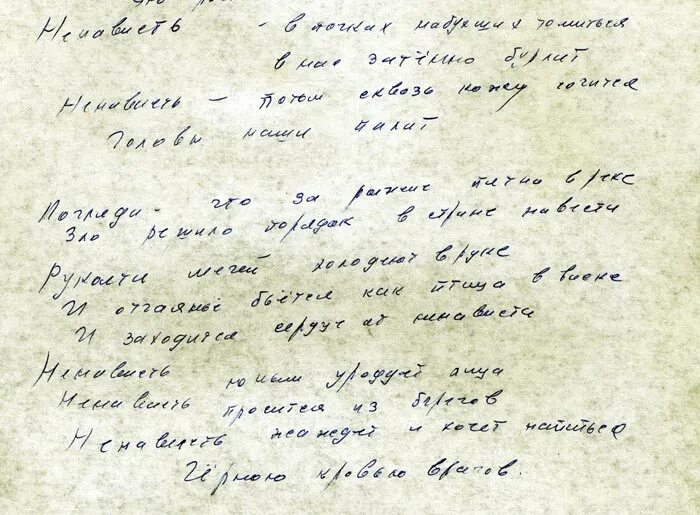 Ненависть - в почках набухших томиться
в нас затаённо бурлит
Ненависть - потом сквозь кожу сочится
Головы наши палит
Погляди - что за рыжие пятна в реке
Зло решило порядок в стране навести
Рукояти мечей холодеют в руке
И отчаянье бьётся как птица в виске
И заходится сердце от ненависти
Ненависть юным уродует лица
Ненависть просится из берегов
Ненависть жаждет и хочет напиться
Чёрною кровью врагов.